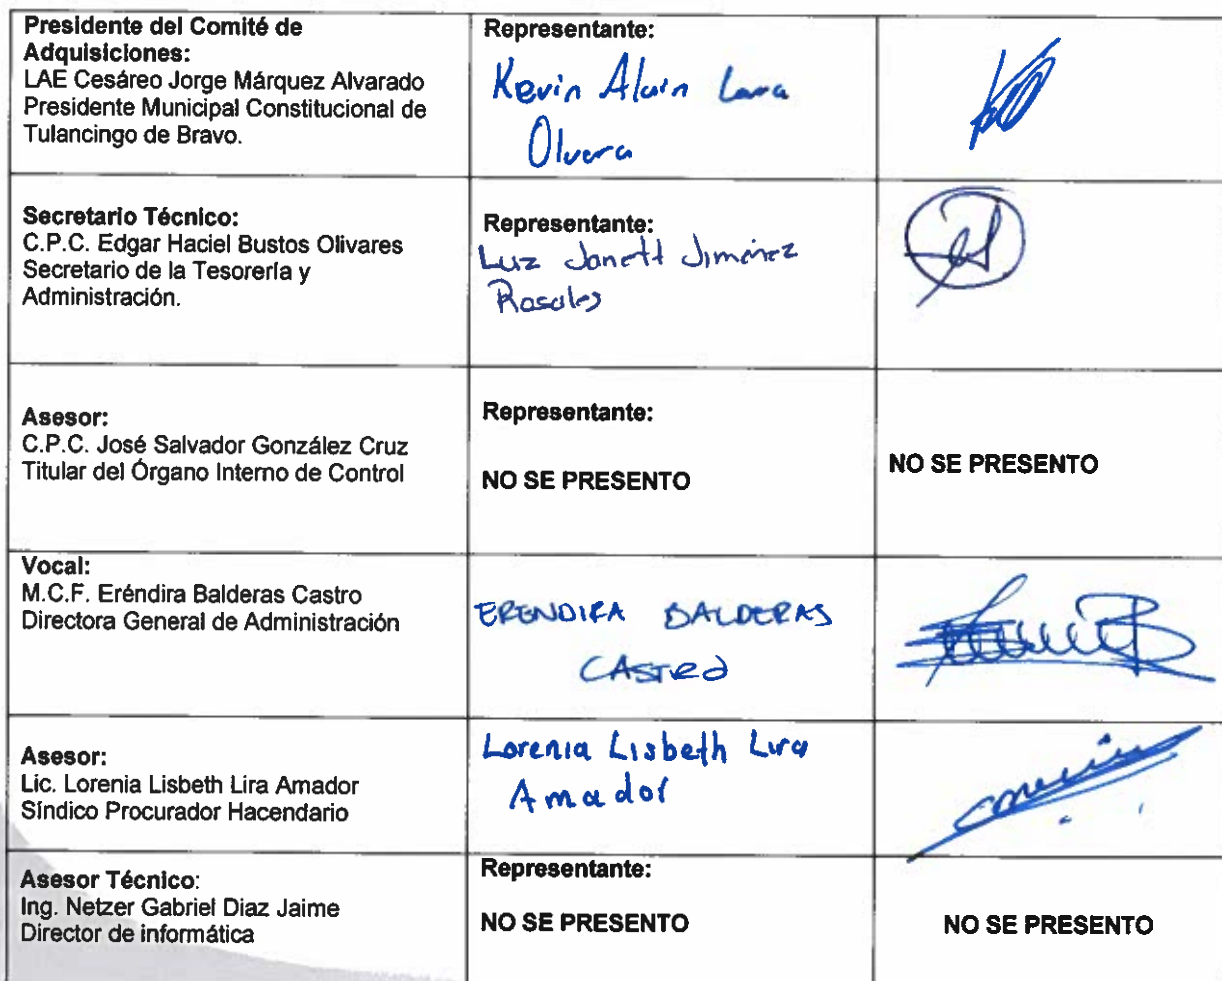 Presidente del Comité de
Adquisiciones:
LAE Cesáreo Jorge Márquez Alvarado
Presidente Municipal Constitucional de
Tulancingo de Bravo.
Representante:
Kevin Alain Lara
Olvera
Secretario Técnico:
C.P.C. Edgar Haciel Bustos Olivares
Secretario de la Tesorería y
Administración.
Representante:
Luz Janett Jiménez
Rosales
Asesor:
C.P.C. José Salvador González Cruz
Titular del Órgano Interno de Control
Representante:
NO SE PRESENTO
NO SE PRESENTO
Vocal:
M.C.F. Eréndira Balderas Castro
Directora General de Administración
ERENDIRA BALDERAS
CASTRO
Asesor:
Lic. Lorenia Lisbeth Lira Amador
Síndico Procurador Hacendario
Lorenia Lisbeth Lira
Amador
Asesor Técnico:
Ing. Netzer Gabriel Diaz Jaime
Director de informática
Representante:
NO SE PRESENTO
NO SE PRESENTO